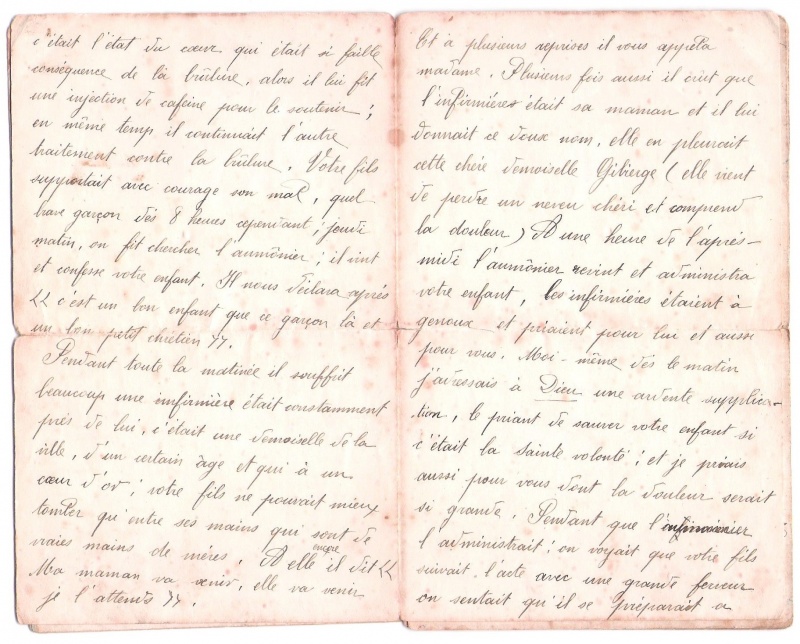 c'était l'état du cœur qui était si faible
conséquence de la brûlure, alors il lui fit
une injection de cafeine pour le soutenir ;
en même temp il continuait l'autre
traitement contre la brûlure. Votre fils
supportait avec courage son mal, quel
brave garçon dès 8 heures cependant ; jeudi
matin, on fit chercher l'aumônier ; il vint
et confesse votre enfant. Il nous déclara après
<< c'est un bon enfant que ce garçon là et
un bon petit chrétien >>.
Pendant toute la matinée il souffrit
beaucoup une infirmière était constamment
près de lui, c'était une demoiselle de la
ville, d'un certain âge et qui à un
cœur d'or ; votre fils ne pouvait mieux
tomber qu'entre ses mains qui sont de
vraies mains de mères. A elle il dit encore <<
Ma maman va venir, elle va venir
je l'attends >>.
Et à plusieurs reprises il vous appela
madame. Plusieurs fois aussi il crut que
l'infirmières était sa maman et il lui
donnait ce doux nom, elle en pleurait
cette chère demoiselle Giberge (elle vient
de perdre un neveu chéri et comprend
la douleur) A une heure de l'après-
midi l'aumônier revint et administra
votre enfant, les infirmières étaient à
genoux et priaient pour lui et aussi
pour vous. Moi-même dès le matin
j'adressais à Dieu une ardente supplica-
tion, le priant de sauver votre enfant si
c'était la sainte volonté ; et je priais
aussi pour vous dont la douleur serait
si grande. Pendant que
l'administrait ; on voyait que votre fils
suivait l'acte avec une grande ferveur
on sentait qu'il se préparait a